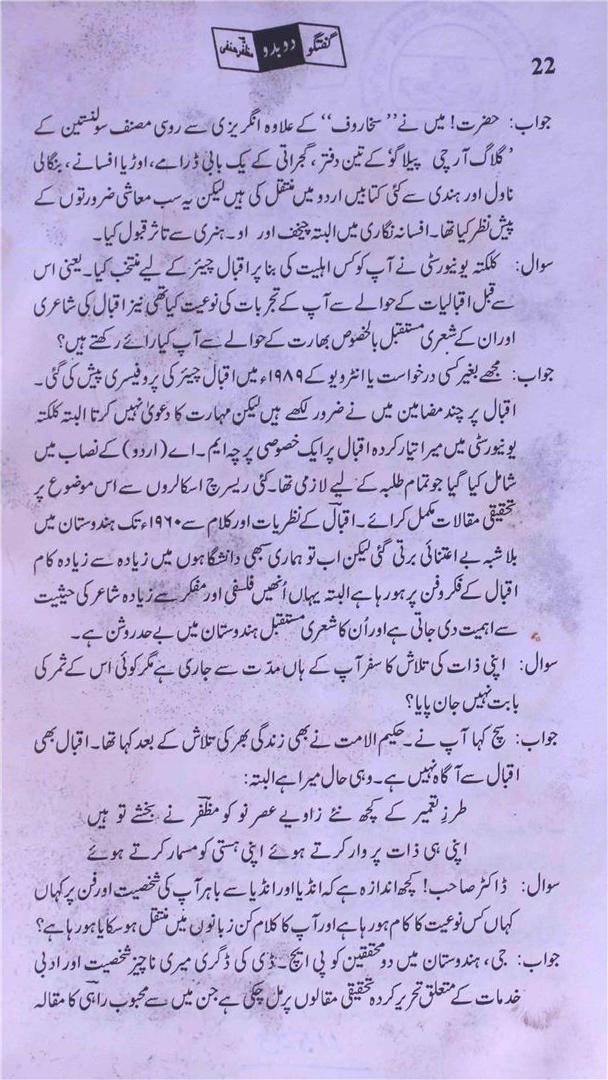 گفتگو دو بدو مظفر حنفی
22
جواب: حضرت! میں نے ”سخاروف“ کے علاوہ انگریزی سے روسی مصنف سولنستین کے
’گلاگ آرچی پیلاگو‘ کے تین دفتر، گجراتی کے یک بابی ڈرامے، اوڑیا افسانے، بنگالی
ناول اور ہندی سے کئی کتابیں اردو میں منتقل کی ہیں لیکن یہ سب معاشی ضرورتوں کے
پیش نظر کیا تھا۔ افسانہ نگاری میں البتہ چیخف اور او۔ ہنری سے تاثر قبول کیا۔
سوال: کلکتہ یونیورسٹی نے آپ کو کس اہلیت کی بنا پر اقبال چیئر کے لیے منتخب کیا۔ یعنی اس
سے قبل اقبالیات کے حوالے سے آپ کے تجربات کی نوعیت کیا تھی نیز اقبال کی شاعری
اور ان کے شعری مستقبل بالخصوص بھارت کے حوالے سے آپ کیا رائے رکھتے ہیں؟
جواب: مجھے بغیر کسی درخواست یا انٹرویو کے ۱۹۸۹ء میں اقبال چیئر کی پروفیسری پیش کی گئی۔
اقبال پر چند مضامین میں نے ضرور لکھے ہیں لیکن مہارت کا دعویٰ نہیں کرتا البتہ کلکتہ
یونیورسٹی میں میرا تیار کردہ اقبال پر ایک خصوصی پرچہ ایم۔ اے (اردو) کے نصاب میں
شامل کیا گیا جو تمام طلبہ کے لیے لازمی تھا۔ کئی ریسرچ اسکالروں سے اس موضوع پر
تحقیقی مقالات مکمل کرائے۔ اقبالؔ کے نظریات اور کلام سے ۱۹۶۰ء تک ہندوستان میں
بلا شبہ بے اعتنائی برتی گئی لیکن اب تو ہماری سبھی دانشگاہوں میں زیادہ سے زیادہ کام
اقبال کے فکر و فن پر ہو رہا ہے البتہ یہاں اُنھیں فلسفی اور مفکر سے زیادہ شاعر کی حیثیت
سے اہمیت دی جاتی ہے اور اُن کا شعری مستقبل ہندوستان میں بے حد روشن ہے۔
سوال: اپنی ذات کی تلاش کا سفر آپ کے ہاں مدّت سے جاری ہے مگر کوئی اس کے ثمر کی
بابت نہیں جان پایا؟
جواب: سچ کہا آپ نے۔ حکیم الامت نے بھی زندگی بھر کی تلاش کے بعد کہا تھا۔ اقبال بھی
اقبال سے آگاہ نہیں ہے۔ وہی حال میرا ہے البتہ:
طرزِ تعمیر کے کچھ نئے زاویے عصرِ نو کو مظفرؔ نے بخشے تو ہیں
اپنی ہی ذات پر وار کرتے ہوئے اپنی ہستی کو مسمار کرتے ہوئے
سوال: ڈاکٹر صاحب! کچھ اندازہ ہے کہ انڈیا اور انڈیا سے باہر آپ کی شخصیت اور فن پر کہاں
کہاں کس نوعیت کا کام ہو رہا ہے اور آپ کا کلام کن زبانوں میں منتقل ہو سکا یا ہو رہا ہے؟
جواب: جی، ہندوستان میں دو محققین کو پی ایچ۔ ڈی کی ڈگری میری ناچیز شخصیت اور ادبی
خدمات کے متعلق تحریر کردہ تحقیقی مقالوں پر مل چکی ہے جن میں سے محبوب راہیؔ کا مقالہ